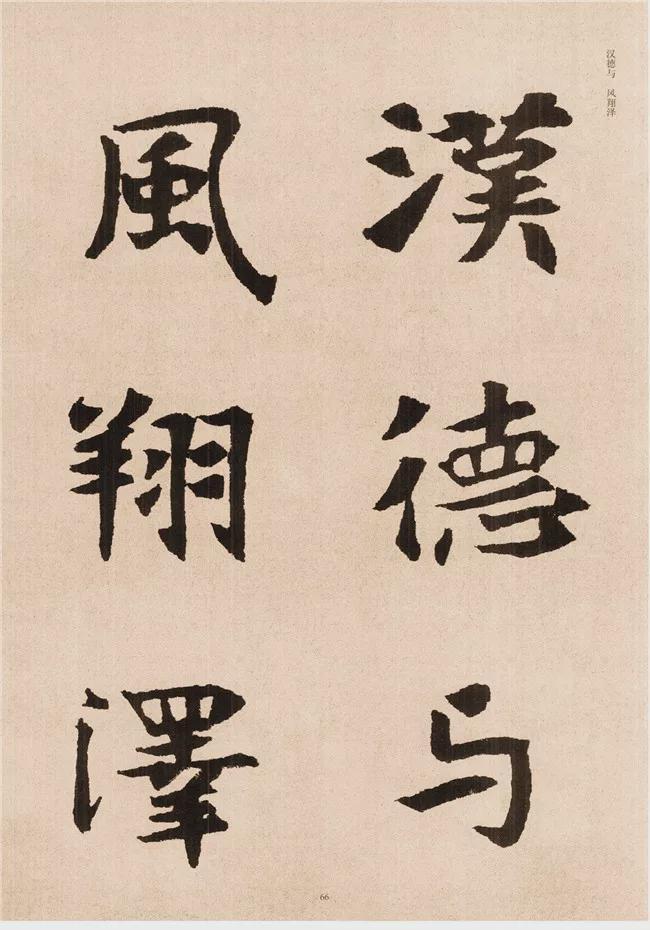 汉德与 风翔泽
漢德与
風翔澤
66